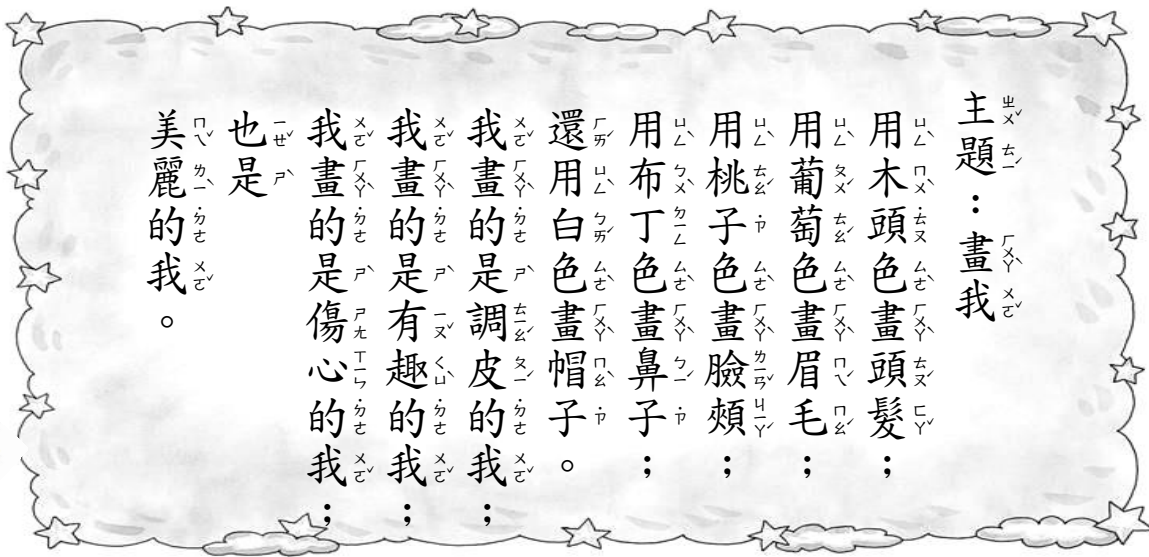 主題：畫我
用木頭色畫頭髮；
用葡萄色畫眉毛；
用桃子色畫臉頰；
用布丁色畫鼻子；
還用白色畫帽子。
我畫的是調皮的我；
我畫的是有趣的我；
我畫的是傷心的我；
也是
美麗的我。